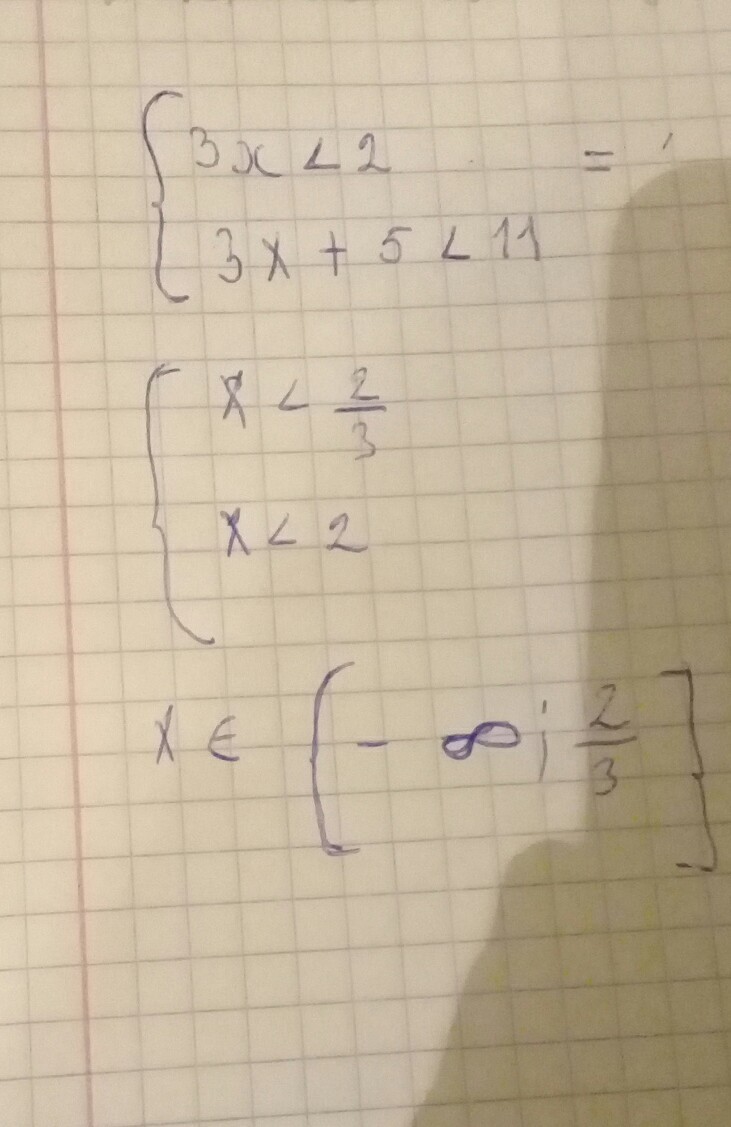 { 3x < 2 =
3x + 5 < 11
{ x < 2/3
x < 2
x ∈ [- ∞; 2/3]